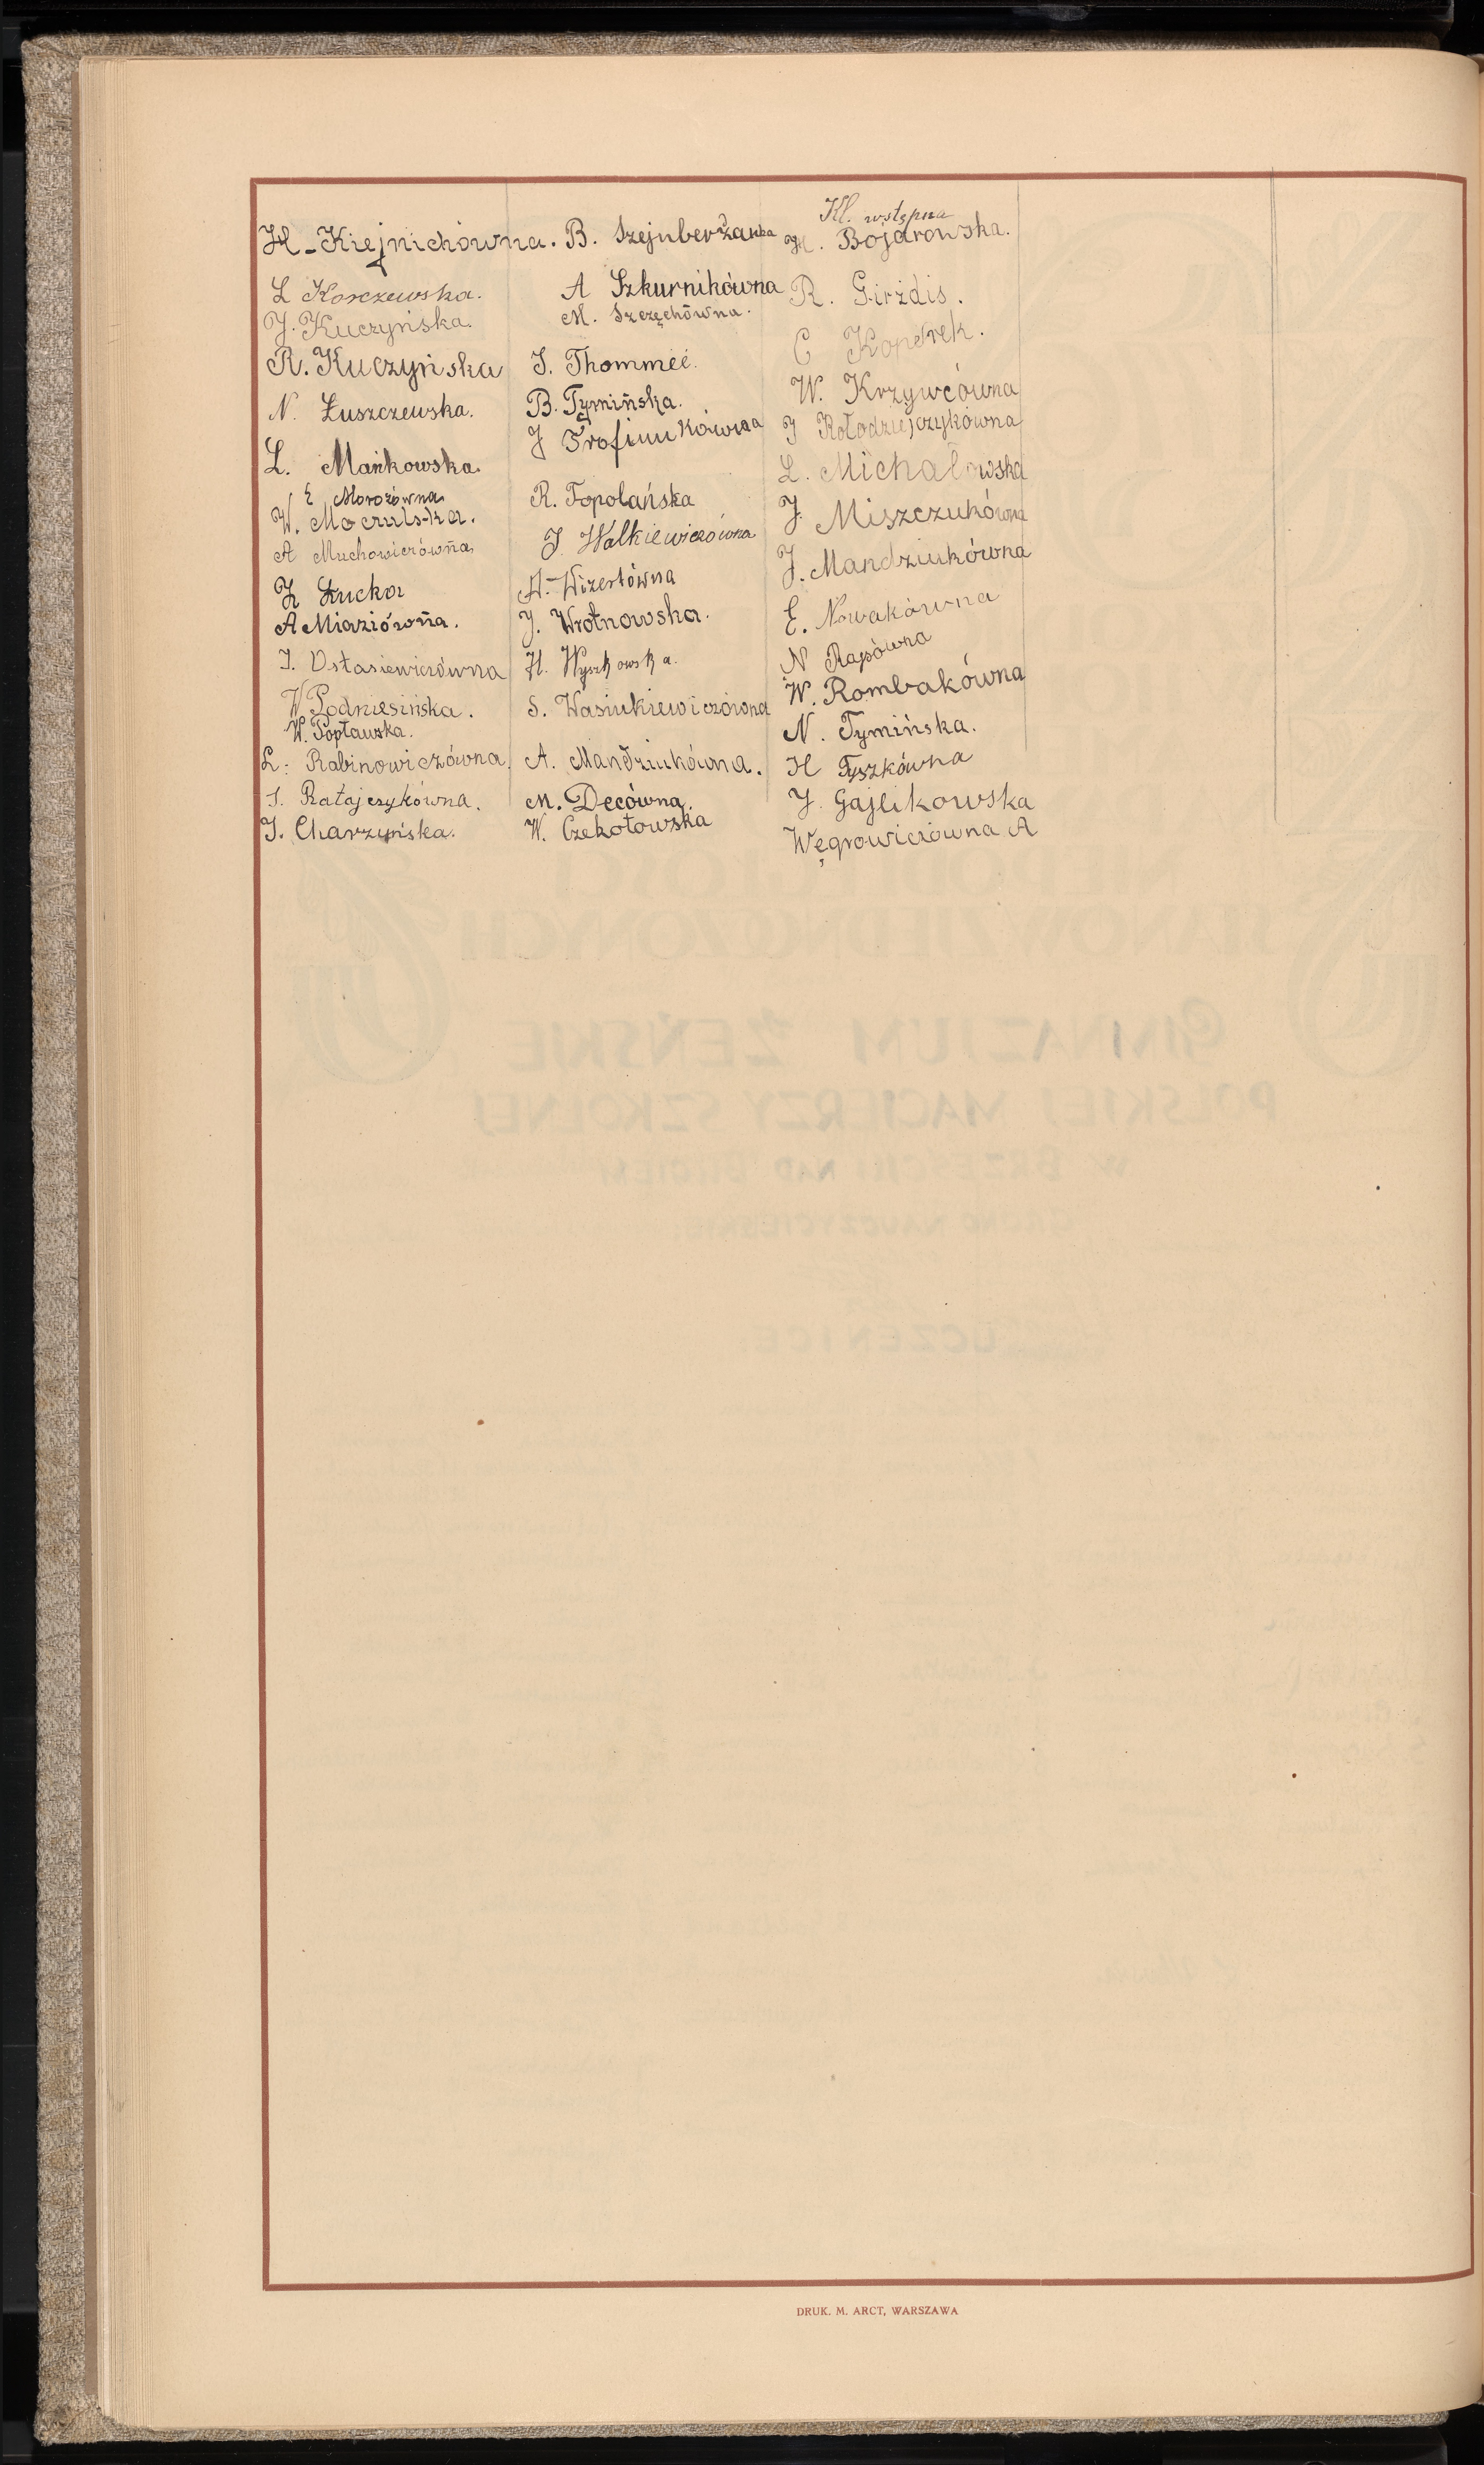 H. Kiejnichówna.
L Korczewska.
J. Kuczyńska.
R. Kuczyńska
N. Łuszczewska.
L. Mańkowska.
E Morozówna
W. Moczulska.
A Muchowiczówna
Z Łucka
A Miaziówna.
I. Ostasiewiczówna
W Podniesińska.
W. Popławska.
L. Rabinowiczówna
I. Ratajczykówna.
J. Charzyńska.
B. Szejnberżanka
A Szkurnikówna
M. Szczęchówna.
I. Thommeé.
B. Tymińska.
J Trofimukówna
R. Topolańska
J. Walkiewiczówna
A. Wizertówna
J. Wrotnowska.
H. Wyszkowska.
S. Wasiukiewiczówna
A. Mandziukówna.
M. Decówna.
W. Czekotowska
Kl. wstępna
H. Bojarowska.
R. Girżdis.
C Koperek.
W. Krzywcówna
J Kołodziejczykówna
L. Michałowska
J. Miszczukówna
J. Mandziukówna
E. Nowakówna
N Rapówna
W. Rombakówna
N. Tymińska.
H Tyszkówna
J. Gajlikowska
Węgrowiczówna A
DRUK. M. ARCT, WARSZAWA